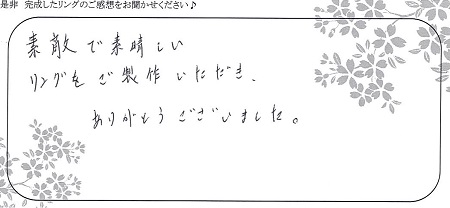 是非 完成したリングのご感想をお聞かせください♪
素敵で素晴しい
リングをご製作いただき、
ありがとうございました。